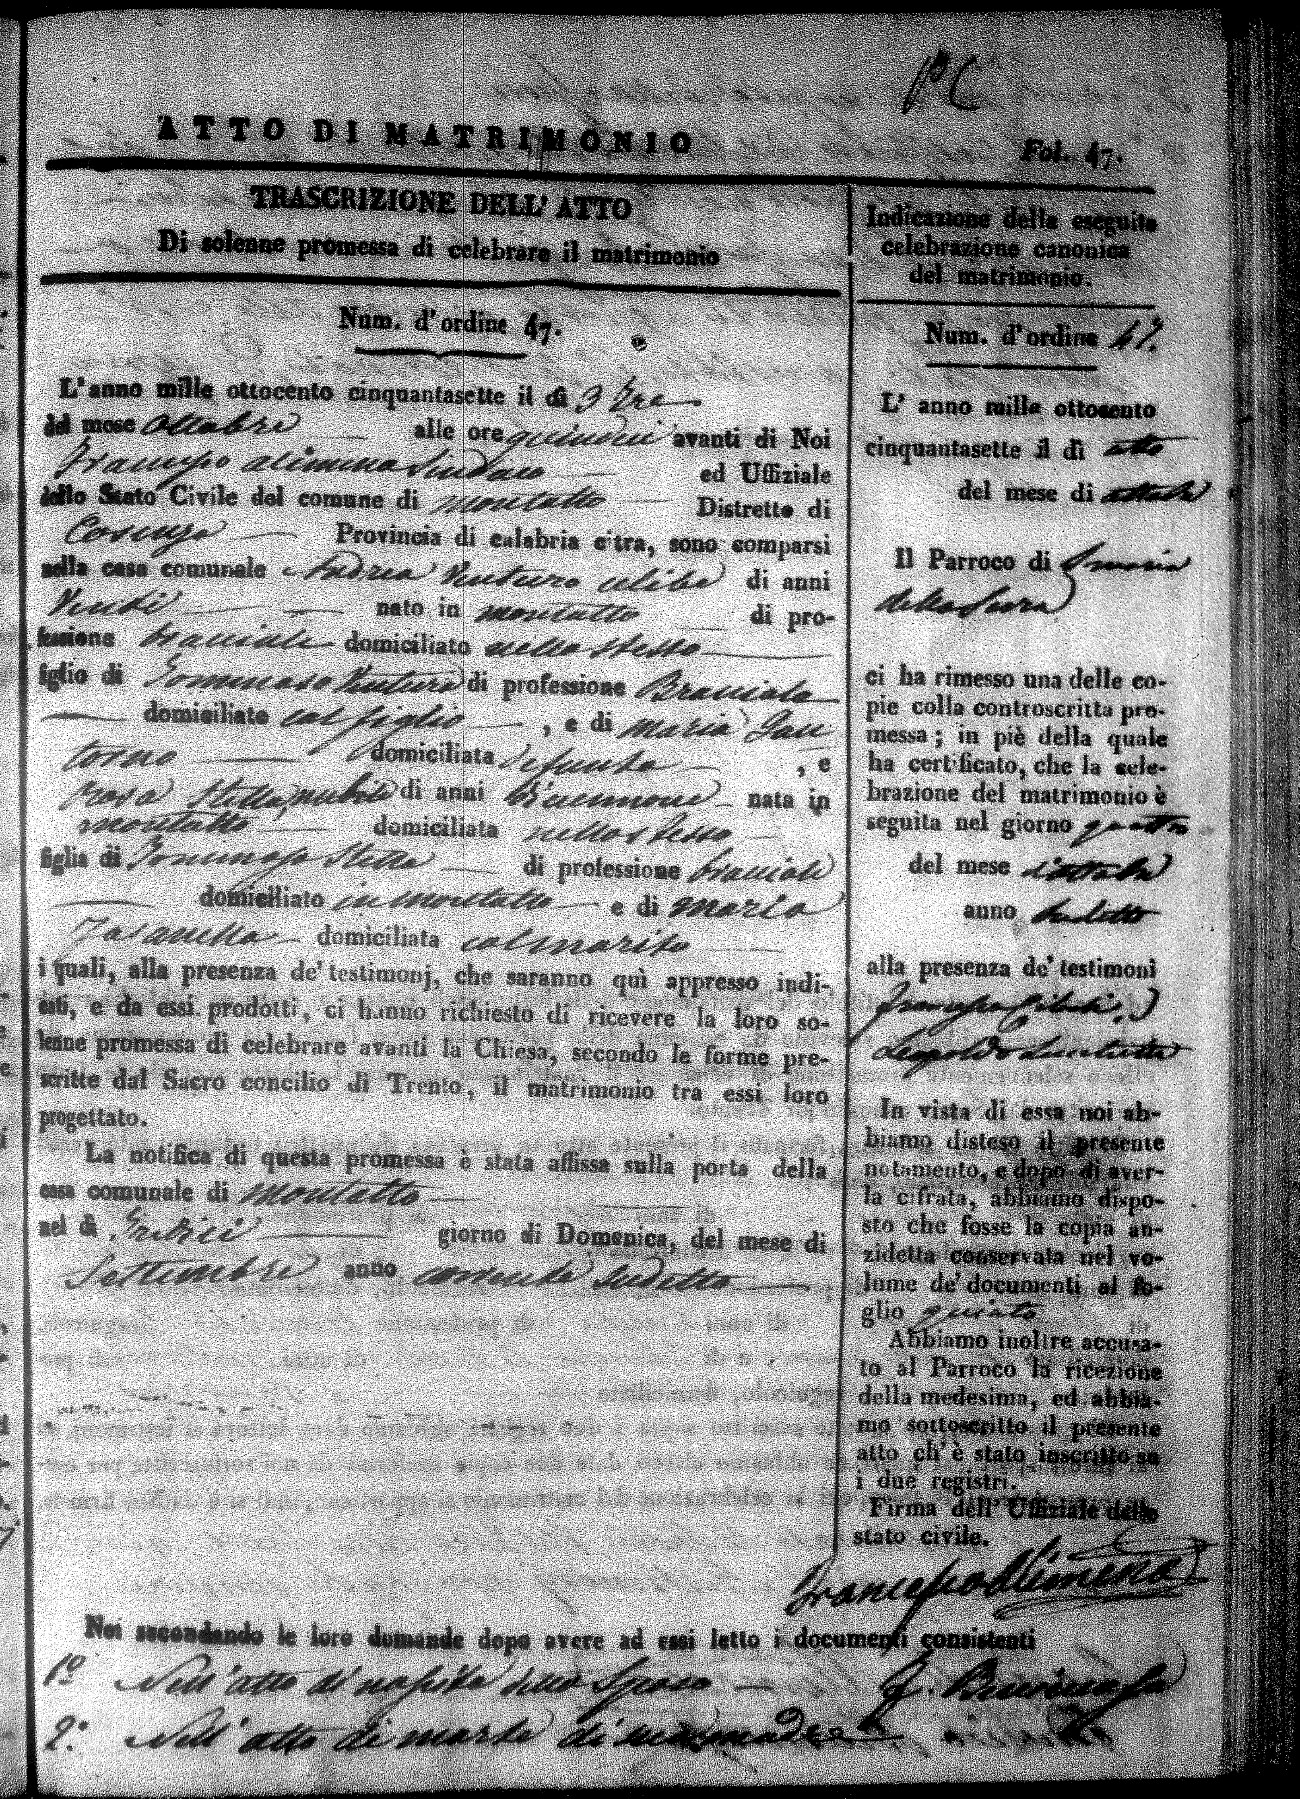 ATTO DI MATRIMONIO
Fol. 47.
TRASCRIZIONE DELL' ATTO
Di solenne promessa di celebrare il matrimonio
Num. d'ordine 47.
L'anno mille ottocento cinquantasette il dì 3 tre
del mese Ottobre alle ore quindici avanti di Noi
Francesco Alimena Sindaco ed Uffiziale
dello Stato Civile del comune di Montalto Distretto di
Cosenza Provincia di calabria citra, sono comparsi
nella casa comunale Andrea Venturo celibe di anni
Venti nato in Montalto di pro-
fessione bracciale domiciliato nello stesso
figlio di Tommaso Venturo di professione Bracciale
domiciliato col figlio , e di Maria
domiciliata defunta , e
Rosa Stella nubile di anni diecinnove nata in
Montalto domiciliata nello stesso
figlia di Tommaso Stella di professione bracciale
domiciliato in Montalto e di Maria
domiciliata col marito
i quali, alla presenza de' testimonj, che saranno quì appresso indi-
cati, e da essi prodotti, ci hanno richiesto di ricevere la loro so-
lenne promessa di celebrare avanti la Chiesa, secondo le forme pre-
scritte dal Sacro concilio di Trento, il matrimonio tra essi loro
progettato.
La notifica di questa promessa è stata affissa sulla porta della
casa comunale di Montalto
nel dì tredici giorno di Domenica, del mese di
Settembre anno corrente sudetto
Indicazione della eseguita
celebrazione canonica
del matrimonio.
Num. d'ordine 47.
L' anno mille ottocento
cinquantasette il dì otto
del mese di ottobre
Il Parroco di
della Serra
ci ha rimesso una delle co-
pie colla controscritta pro-
messa; in piè della quale
ha certificato, che la cele-
brazione del matrimonio è
seguita nel giorno quattro
del mese d'ottobre
anno sudetto
alla presenza de' testimoni
Francesco
Leopoldo
In vista di essa noi ab-
biamo disteso il presente
notamento, e dopo di aver-
la cifrata, abbiamo dispo-
sto che fosse la copia an-
zidetta conservata nel vo-
lume de' documenti al fo-
glio quinto
Abbiamo inoltre accusa-
to al Parroco la ricezione
della medesima, ed abbia-
mo sottoscritto il presente
atto ch' è stato inscritto su
i due registri.
Firma dell' Uffiziale dello
stato civile.
Francesco Alimena
Noi secondando le loro domande dopo avere ad essi letto i documenti consistenti
1º Nell'atto di nascita dello Sposo
2º Nell'atto di morte di sua madre